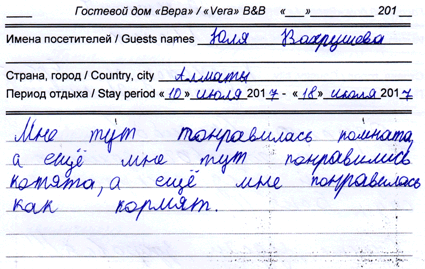 Гостевой дом «Вера» / «Vera» B&B «___» __________ 201 __
Имена посетителей / Guests names Юля Вахрушева
Страна, город / Country, city Алматы
Период отдыха / Stay period «10» июля 2017 - «18» июля 2017
Мне тут понравилась комната,
а ещё мне тут понравились
котята, а ещё мне понравилась
как кормят.